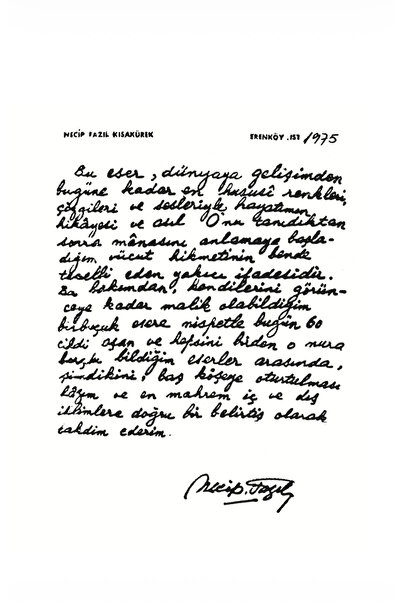 NECİP FAZIL KISAKÜREK
ERENKÖY.İST 1975
Bu eser, dünyaya gelişimden
bugüne kadar en hususî renkleri,
çizgileri ve sesleriyle hayatımın
hikâyesi ve asıl O'nu tanıdıktan
sonra mânasını anlamaya başla-
dığım vücut hikmetinin bende
tecelli eden yakıcı ifadesidir.
Bu bakımdan, kendilerini görün-
ceye kadar malik olabildiğim
birbuçuk esere nispetle bugün 60
cildi aşan ve hepsini birden o nura
borçlu bildiğim eserler arasında,
şimdikini, baş köşeye oturtulması
lâzım ve en mahrem iç ve dış
iklimlere doğru bir belirtiş olarak
takdim ederim.
Necip Fazıl